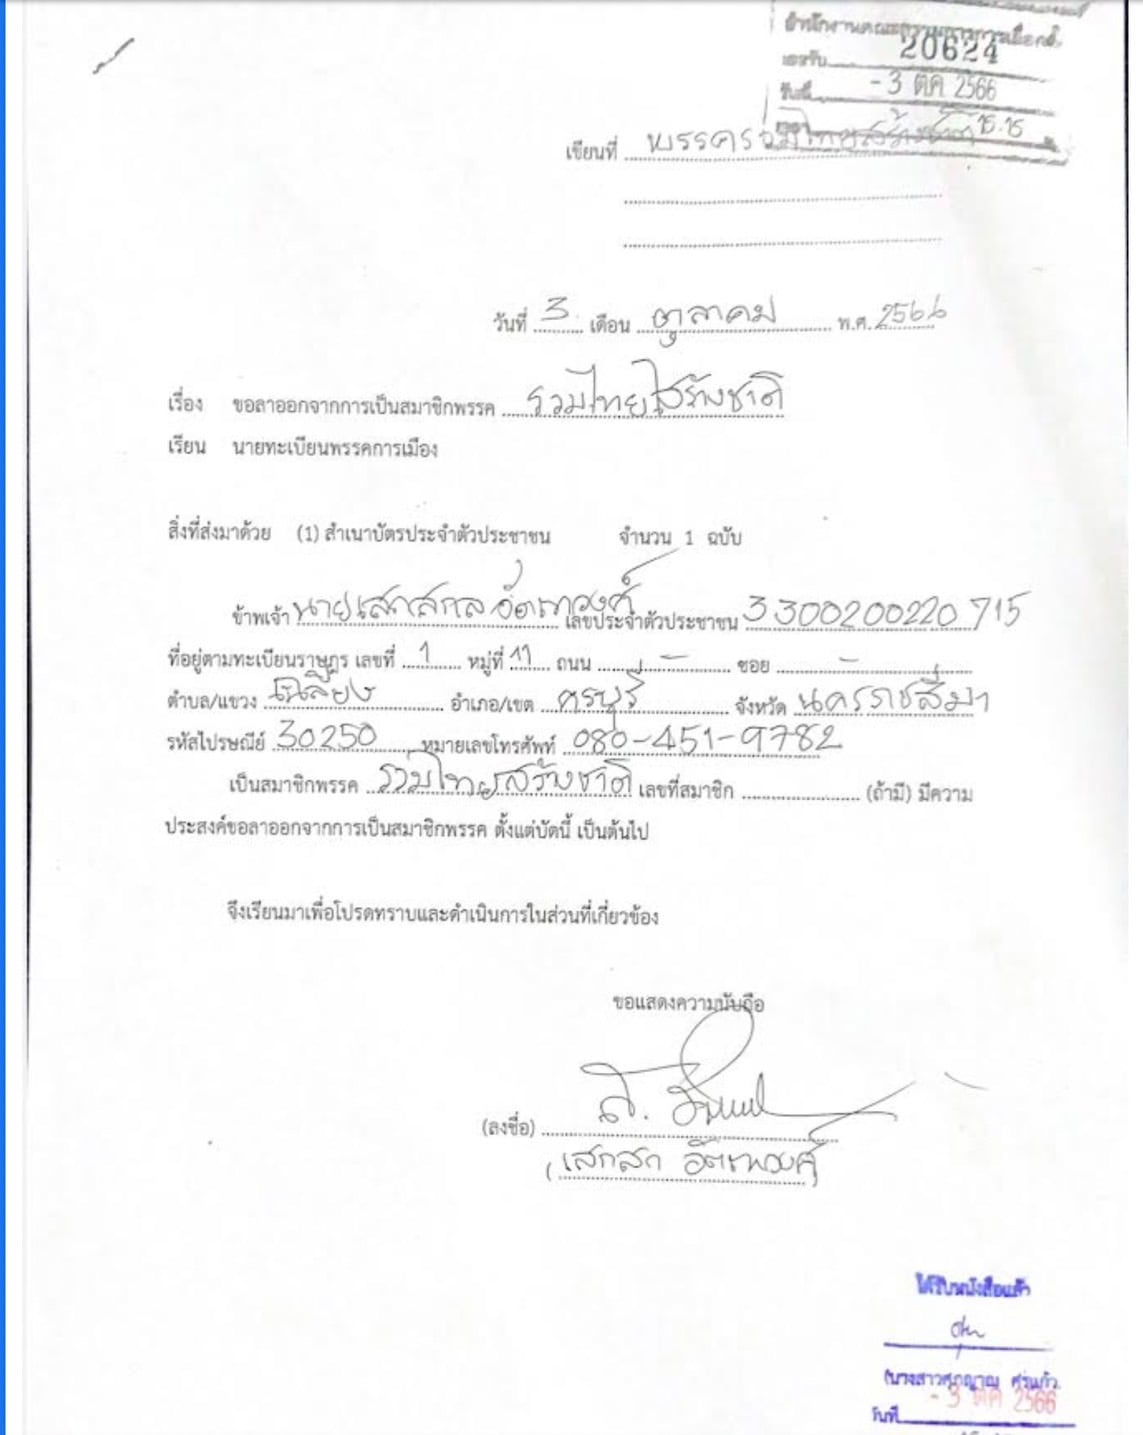 สำนักงานคณะกรรมการการเลือกตั้ง
เลขรับ 20624
วันที่ - 3 ตค 2566
15.15
เขียนที่ พรรครวมไทยสร้างชาติ
วันที่ 3 เดือน ตุลาคม พ.ศ. 2566
เรื่อง ขอลาออกจากการเป็นสมาชิกพรรค รวมไทยสร้างชาติ
เรียน นายทะเบียนพรรคการเมือง
สิ่งที่ส่งมาด้วย (1) สำเนาบัตรประจำตัวประชาชน จำนวน 1 ฉบับ
ข้าพเจ้า นายเสกสกล อัตถาวงศ์ เลขประจำตัวประชาชน 3300200220715
ที่อยู่ตามทะเบียนราษฎร เลขที่ 1 หมู่ที่ 11 ถนน - ซอย -
ตำบล/แขวง เฉลียง อำเภอ/เขต ครบุรี จังหวัด นครราชสีมา
รหัสไปรษณีย์ 30250 หมายเลขโทรศัพท์ 080-451-9782
เป็นสมาชิกพรรค รวมไทยสร้างชาติ เลขที่สมาชิก (ถ้ามี) มีความ
ประสงค์ขอลาออกจากการเป็นสมาชิกพรรค ตั้งแต่บัดนี้ เป็นต้นไป
จึงเรียนมาเพื่อโปรดทราบและดำเนินการในส่วนที่เกี่ยวข้อง
ขอแสดงความนับถือ
(ลงชื่อ)
(เสกสกล อัตถาวงศ์)
ได้รับหนังสือแล้ว
(นางสาวศุภญาณ
วันที่ - 3 ตค 2566